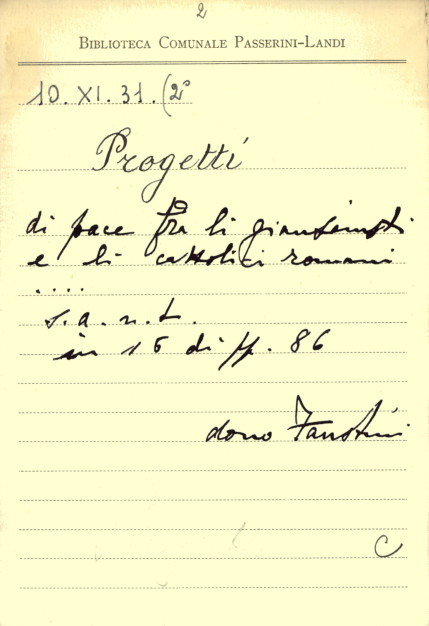 2
BIBLIOTECA COMUNALE PASSERINI-LANDI
10. XI. 31. (2°
Progetti
di pace fra li giansenisti
e li cattolici romani
....
s. a. n. t.
in 16 di pp. 86
dono Faustini
C